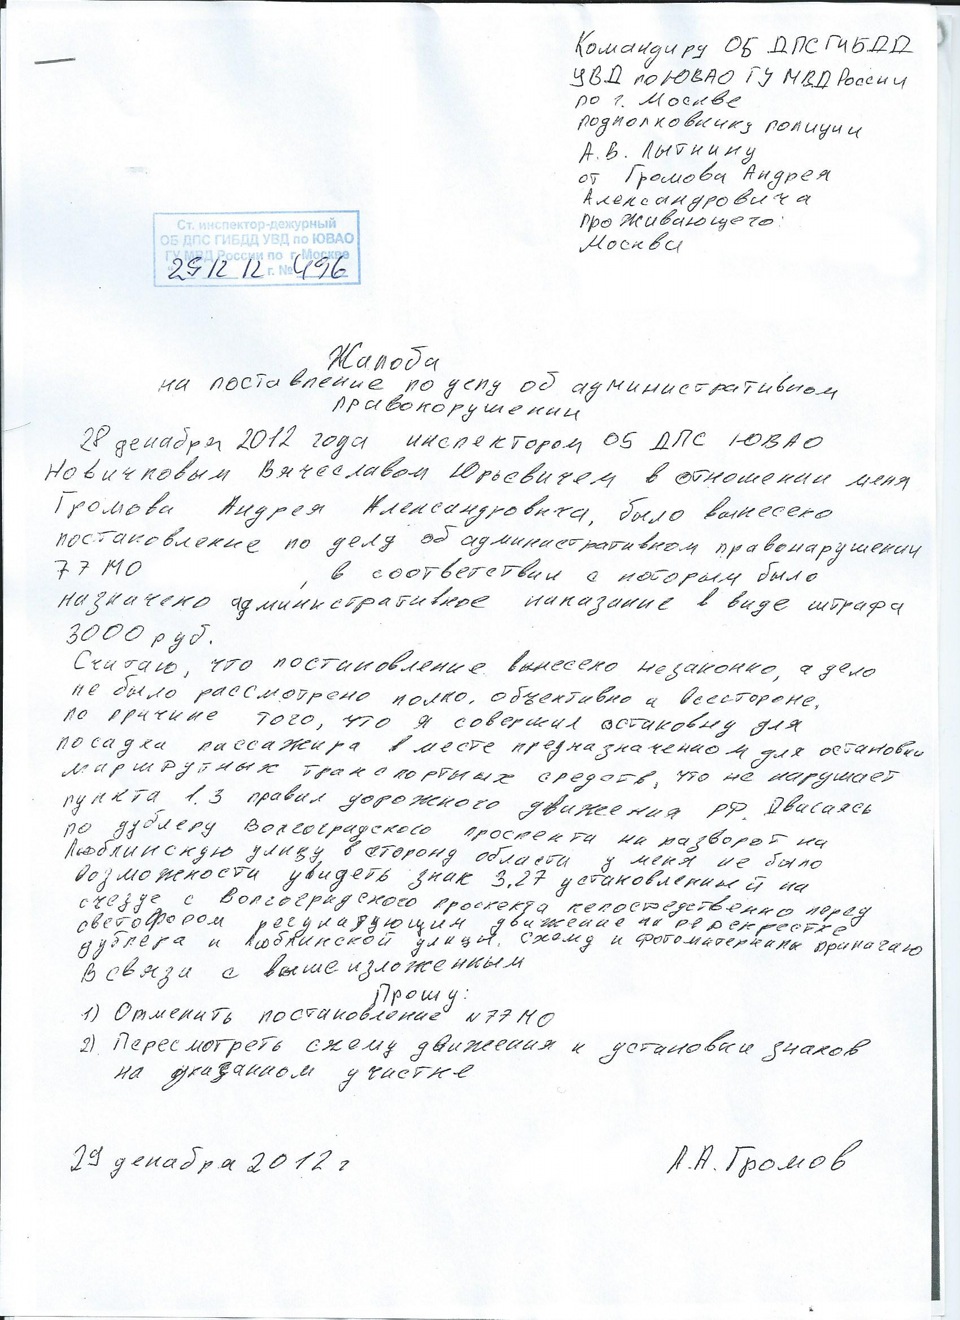 Командиру ОБ ДПС ГИБДД
УВД по ЮВАО ГУ МВД России
по г. Москве
подполковнику полиции
А.В. Лытнину
от Громова Андрея
Александровича
проживающего:
Москва
Ст. инспектор-дежурный
ОБ ДПС ГИБДД УВД по ЮВАО
ГУ МВД России по г. Москве
29 12 12 г. № 496
Жалоба
на поставление по делу об административном
правонорушении
28 декабря 2012 года инспектором ОБ ДПС ЮВАО
Новичковым Вячеславом Юрьевичем в отношении меня
Громова Андрея Александровича, было вынесено
постановление по делу об административном правонарушении
77 МО , в соответствии с которым было
назначено административное наказание в виде штрафа
3000 руб.
Считаю, что постановление вынесено незаконно, а дело
не было рассмотрено полно, объективно и всестороне,
по причине того, что я совершил остановку для
посадки пассажира в месте предназначеном для остановки
маршрутных транспортных средств, что не нарушает
пункта 1.3 правил дорожного движения РФ. Двигаясь
по дублеру Волгоградского проспекта на разворот на
Люблинскую улицу в сторону области у меня не было
возможности увидеть знак 3.27 установленный на
съезде с Волгоградского проспекта непосредственно перед
светофором регулирующим движение на перекрестке
дублера и Люблинской улицы. Схему и фотоматериалы прилагаю
В связи с вышеизложенным
Прошу:
1) Отменить постановление №77 МО
2) Пересмотреть схему движения и установки знаков
на указанном участке
29 декабря 2012 г
А.А. Громов